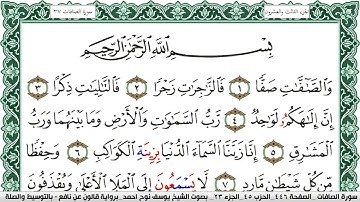 سورة الصافات ٣٧
الجزء الثالث والعشرون
بِسْمِ اللَّهِ الرَّحْمَٰنِ الرَّحِيمِ
وَالصَّٰفَّٰتِ صَفّٗا ١ فَالزَّٰجِرَٰتِ زَجْرٗا ٢ فَالتَّٰلِيَٰتِ ذِكْرًا ٣
إِنَّ إِلَٰهَكُمْ لَوَٰحِدٞ ٤ رَّبُّ السَّمَٰوَٰتِ وَالْأَرْضِ وَمَا بَيْنَهُمَا وَرَبُّ
الْمَشَٰرِقِ ٥ إِنَّا زَيَّنَّا السَّمَآءَ الدُّنْيَا بِزِينَةِ الْكَوَاكِبِ ٦ وَحِفْظٗا
مِّن كُلِّ شَيْطَٰنٖ مَّارِدٖ ٧ لَا يَسْمَعُونَ إِلَى الْمَلَإِ الْأَعْلَىٰ وَيُقْذَفُونَ
سورة الصافات الصفحة ٤٤٦ الحزب ٤٥ الجزء ٢٣ بصوت الشيخ يوسف نوح احمد برواية قالون عن نافع - بالتوسيط والصلة